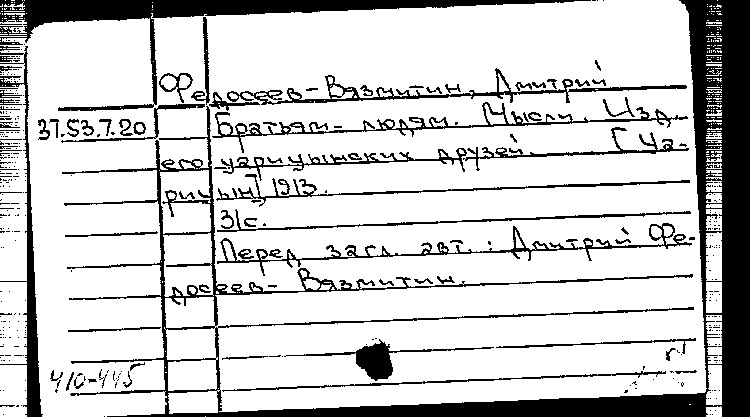 Федосеев-Вязмитин, Дмитрий
37.53.7.20 Братьям-людям. Мысли. Изд.
его царицынских друзей. [Ца-
рицын], 1913.
31с.
Перед загл. авт.: Дмитрий Фе-
досеев-Вязмитин.
410-445